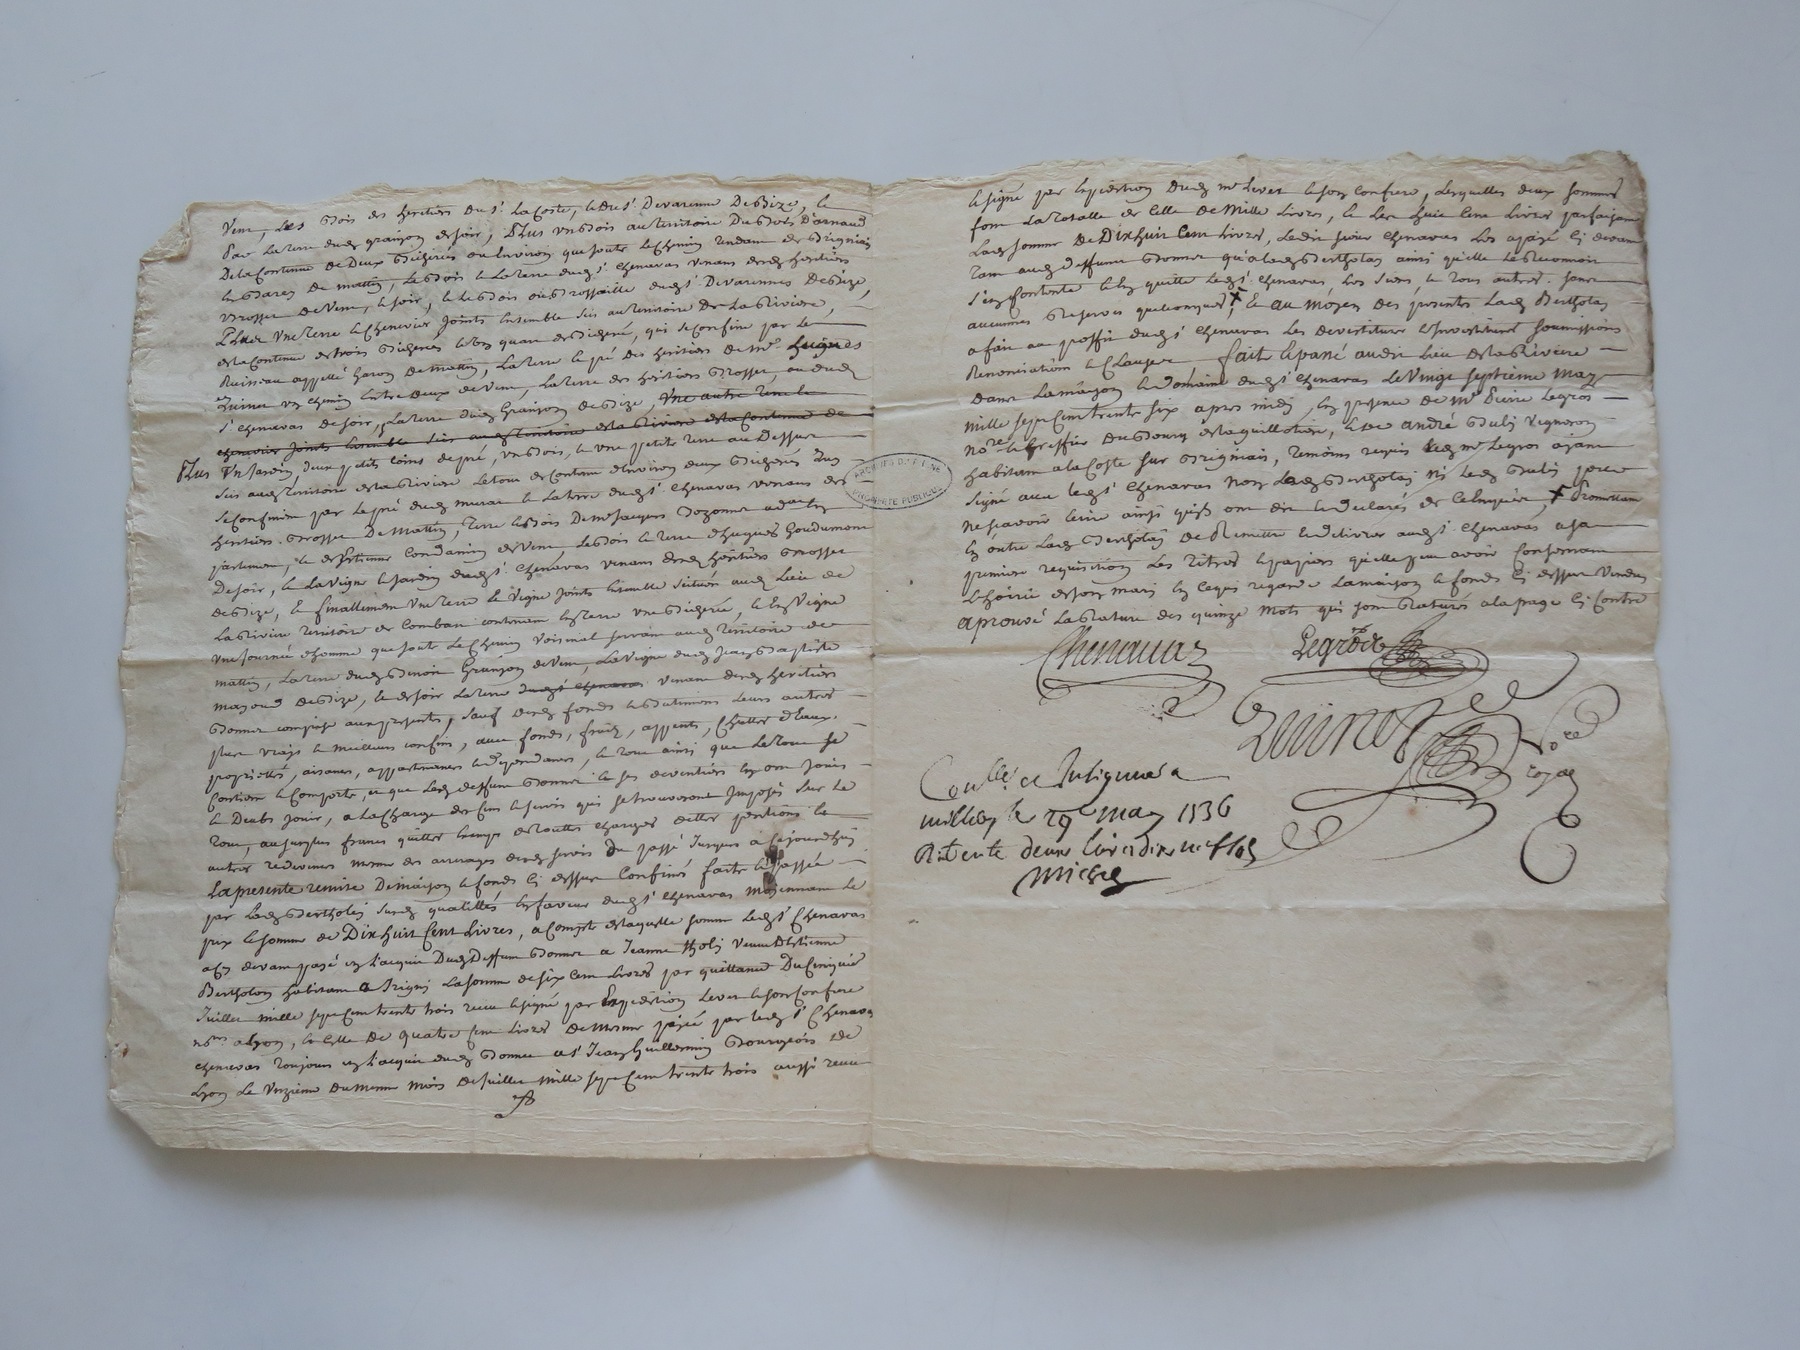 Vent, Les Bois des heritiers du Sr. La Coste, & du Sr. Devarenne De Bize, &
Par La terre dud. granjon de soir, Plus un bois au territoire Du Bois D'arnaud
De la Contenue de Deux Bicherées ou Environ que joute Le Chemin tendant de Brignais
De Matin, Le Bois & La terre dud. Sr. Chenavas venans desd. heritiers
Brossze de Vent, & soir, & Le Bois ou Brossaille dud. Sr. Devarennes De Bize,
Plus Une terre & Chenevier joints Ensemble Sis au territoire De La Riviere,
de la Contenue de trois Bicherées & un quart de Bicherée, qui se Confine par Le
Ruisseau appellé De Mattin, La terre & pré des heritiers de Me.
un Chemin Entre Deux de Vent, La terre des heritiers Brosse, ou dud.
Sr. Chenavas de soir, & La terre dud. Granjon de Bize, Une autre terre &
Chenevier joints Ensemble Sis aud. territoire de la Riviere de la Contenue de
Plus Un Jardin, deux petits Coins de pré, un Bois, & une petite terre au Dessus
Sis aud. territoire de la Riviere Le tout de Contenue d'Environ deux Bicherées
se Confinant par Le pré dud. & La terre dud. Sr. Chenavas venans des
heritiers Brosse De Mattin, terre & Bois De Me Jacques
& d'Estienne de Vent, Le Bois & terre d'hugues Goudumont
De soir, & La Vigne & Jardin dud. Sr. Chenavas venans desd. heritiers Brosse
de Bize, & finallement Une terre & Vigne joints Ensemble Scitués aud. Lieu de
La Riviere territoire de Combart contenant La terre une Bicherée, & La Vigne
une journée d'homme que joute Le Chemin Voisinal servant aud. territoire de
mattin, La terre dud. Benoit Granjon de Vent, La Vigne dud. Jean Baptiste
de Bize, & de soir La terre dud. Sr. Chenavas venant desd. heritiers
Bonnet compris aux presents, Sauf desd. fonds & Batiments Leurs autres
plus vrays & meilleurs confins, avec fonds, fruits, appents, Chuttes d'Eaux,
proprietés, aisances, appartenances & Dependances, & tout ainsi que Le tout se
Contient & Comporte, & que Led. deffunt Bonnet & ses devantiers En ont joui
& Deub jouir, a La Charge des Cens & servis qui se trouveront Imposés sur Le
tout, au surplus franc quitte & Exempt de toutes charges dettes pentions &
autres redevances mesme des arrerages desd. servis du passé jusques à Cejourdhuy
La presente remise De maison & fonds Cy dessus Confinés faite & passée
par Lad. Bertholey Susd. qualittés En faveur dud. Sr. Chenavas Moyennant Le
prix & somme de Dix huit Cent Livres, a Compte de laquelle somme Led. Sr. Chenavas
a Cy devant payé en l'acquit Dud. Deffunt Bonnet a Jeanne Veuve d'Estienne
Bertholon habitant a Irigny La somme de six Cent Livres par quittance Du Cinquieme
Juillet mille sept Cent trente trois recue & signé par Expedition Levet & son Confrere
nores. a Lyon, & Celle De quatre Cent Livres De mesme payée par Led. Sr. Chenavas
Chenavas toujours en l'acquit dud. Bonnet a Sr. Jean Guillermin Bourgeois de
Lyon Le Unzieme Du mesme mois de Juillet mille sept Cent trente trois aussi recue
& signé par Expedition Dud. Me Levet & son Confrere, Lesquelles deux sommes
font La totalle de Celle De Mille Livres, & Les huit Cent Livres parfaisant
Lad. somme De Dix huit Cent Livres, Ledit sieur Chenavas Les a payé Cy devant
tant aud. deffunt Bonnet qu'a Lad. Bertholey ainsi qu'elle Le Reconnoit
s'en Contente & En quitte Led. Sr. Chenavas, Les Siens, & tous autres. sans
aucunes Reserves quelconques + Et au moyen Des presentes Lad. Bertholey
a fait au proffit dud. Sr. Chenavas Les devestiture & investiture soumissions
Renonciations & Clauses fait & passé audit Lieu de la Riviere
Dans La maison & Domaine dud. Sr. Chenavas Le Vingt septieme May
mille sept Cent trente six apres midy, En presence de Me Pierre Legros
Nore & Greffier du Bourg de la guillotiere, & de André Vigneron
habitant a la Coste sur Brignais, temoins requis Led. Me Legros ayant
signé avec Led. Sr. Chenavas Non Lad. Bertholey ni Led. pour
ne scavoir Ecrire ainsi qu'ils ont dit & declarés de Ce Enquis, + Promettant
En outre Lad. Bertholey de Remettre & delivrer aud. Sr. Chenavas a sa
premiere requisition Les titres & papiers qu'elle peut avoir Concernant
L'hoirie de son Mari En Ce qui regarde La maison & fonds Cy dessus Vendus
aprouvé La Rature des quinze Mots qui sont Raturés a la page Cy Contre
Chenavas Legros
Nore
royal
Conllé et Insignué a
le 29 may 1736
Recu deux Livres dix neuf sols
Michel
ARCHIVES DEP.
PROPRIETE PUBLIQUE